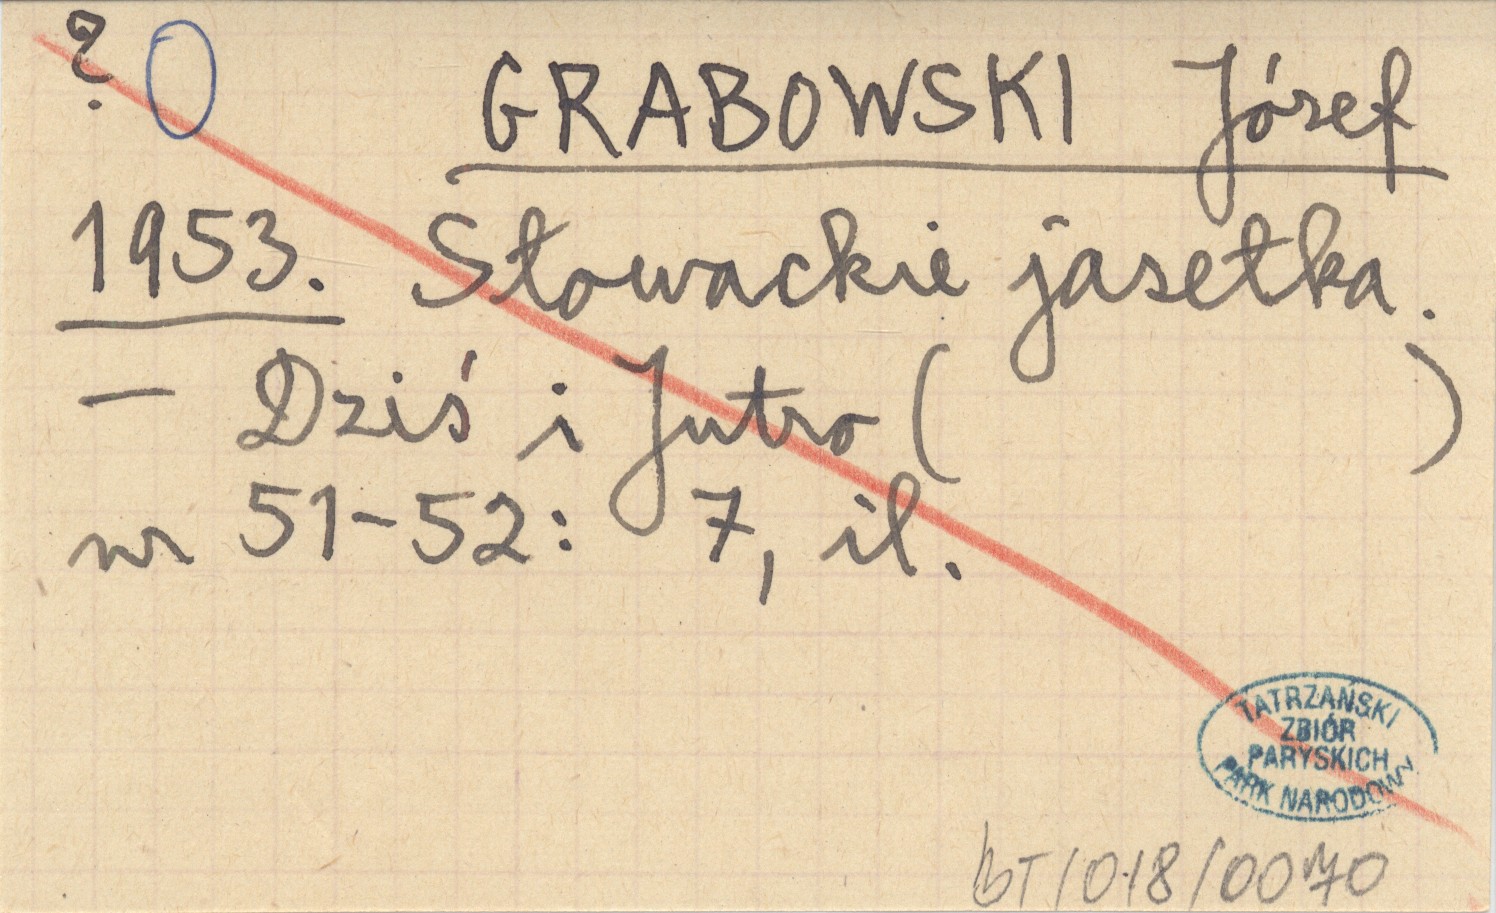 ? GRABOWSKI Józef
1953. Słowackie jasełka.
— Dziś i Jutro ( )
nr 51-52: 7, il.
TATRZAŃSKI
ZBIÓR
PARYSKICH
PARK NARODOWY
BT/018/0070